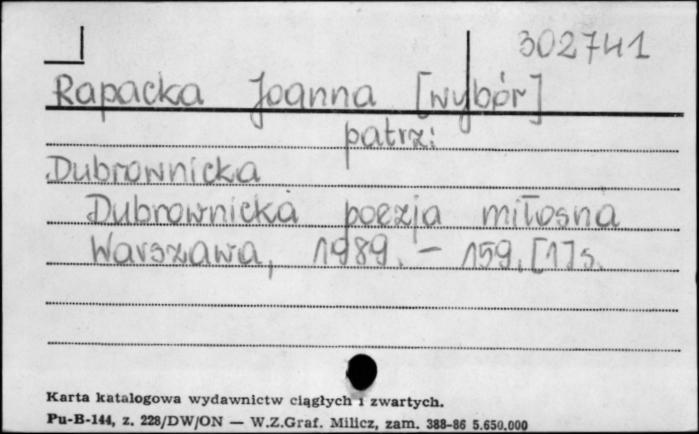 302741
Rapacka Joanna [wybór]
patrz:
Dubrownicka
Dubrownicka poezja miłosna
Warszawa, 1989. - 159, [1] s.
Karta katalogowa wydawnictw ciągłych i zwartych.
Pu-B-144, z. 228/DW/ON — W.Z.Graf. Milicz, zam. 388-86 5.650.000